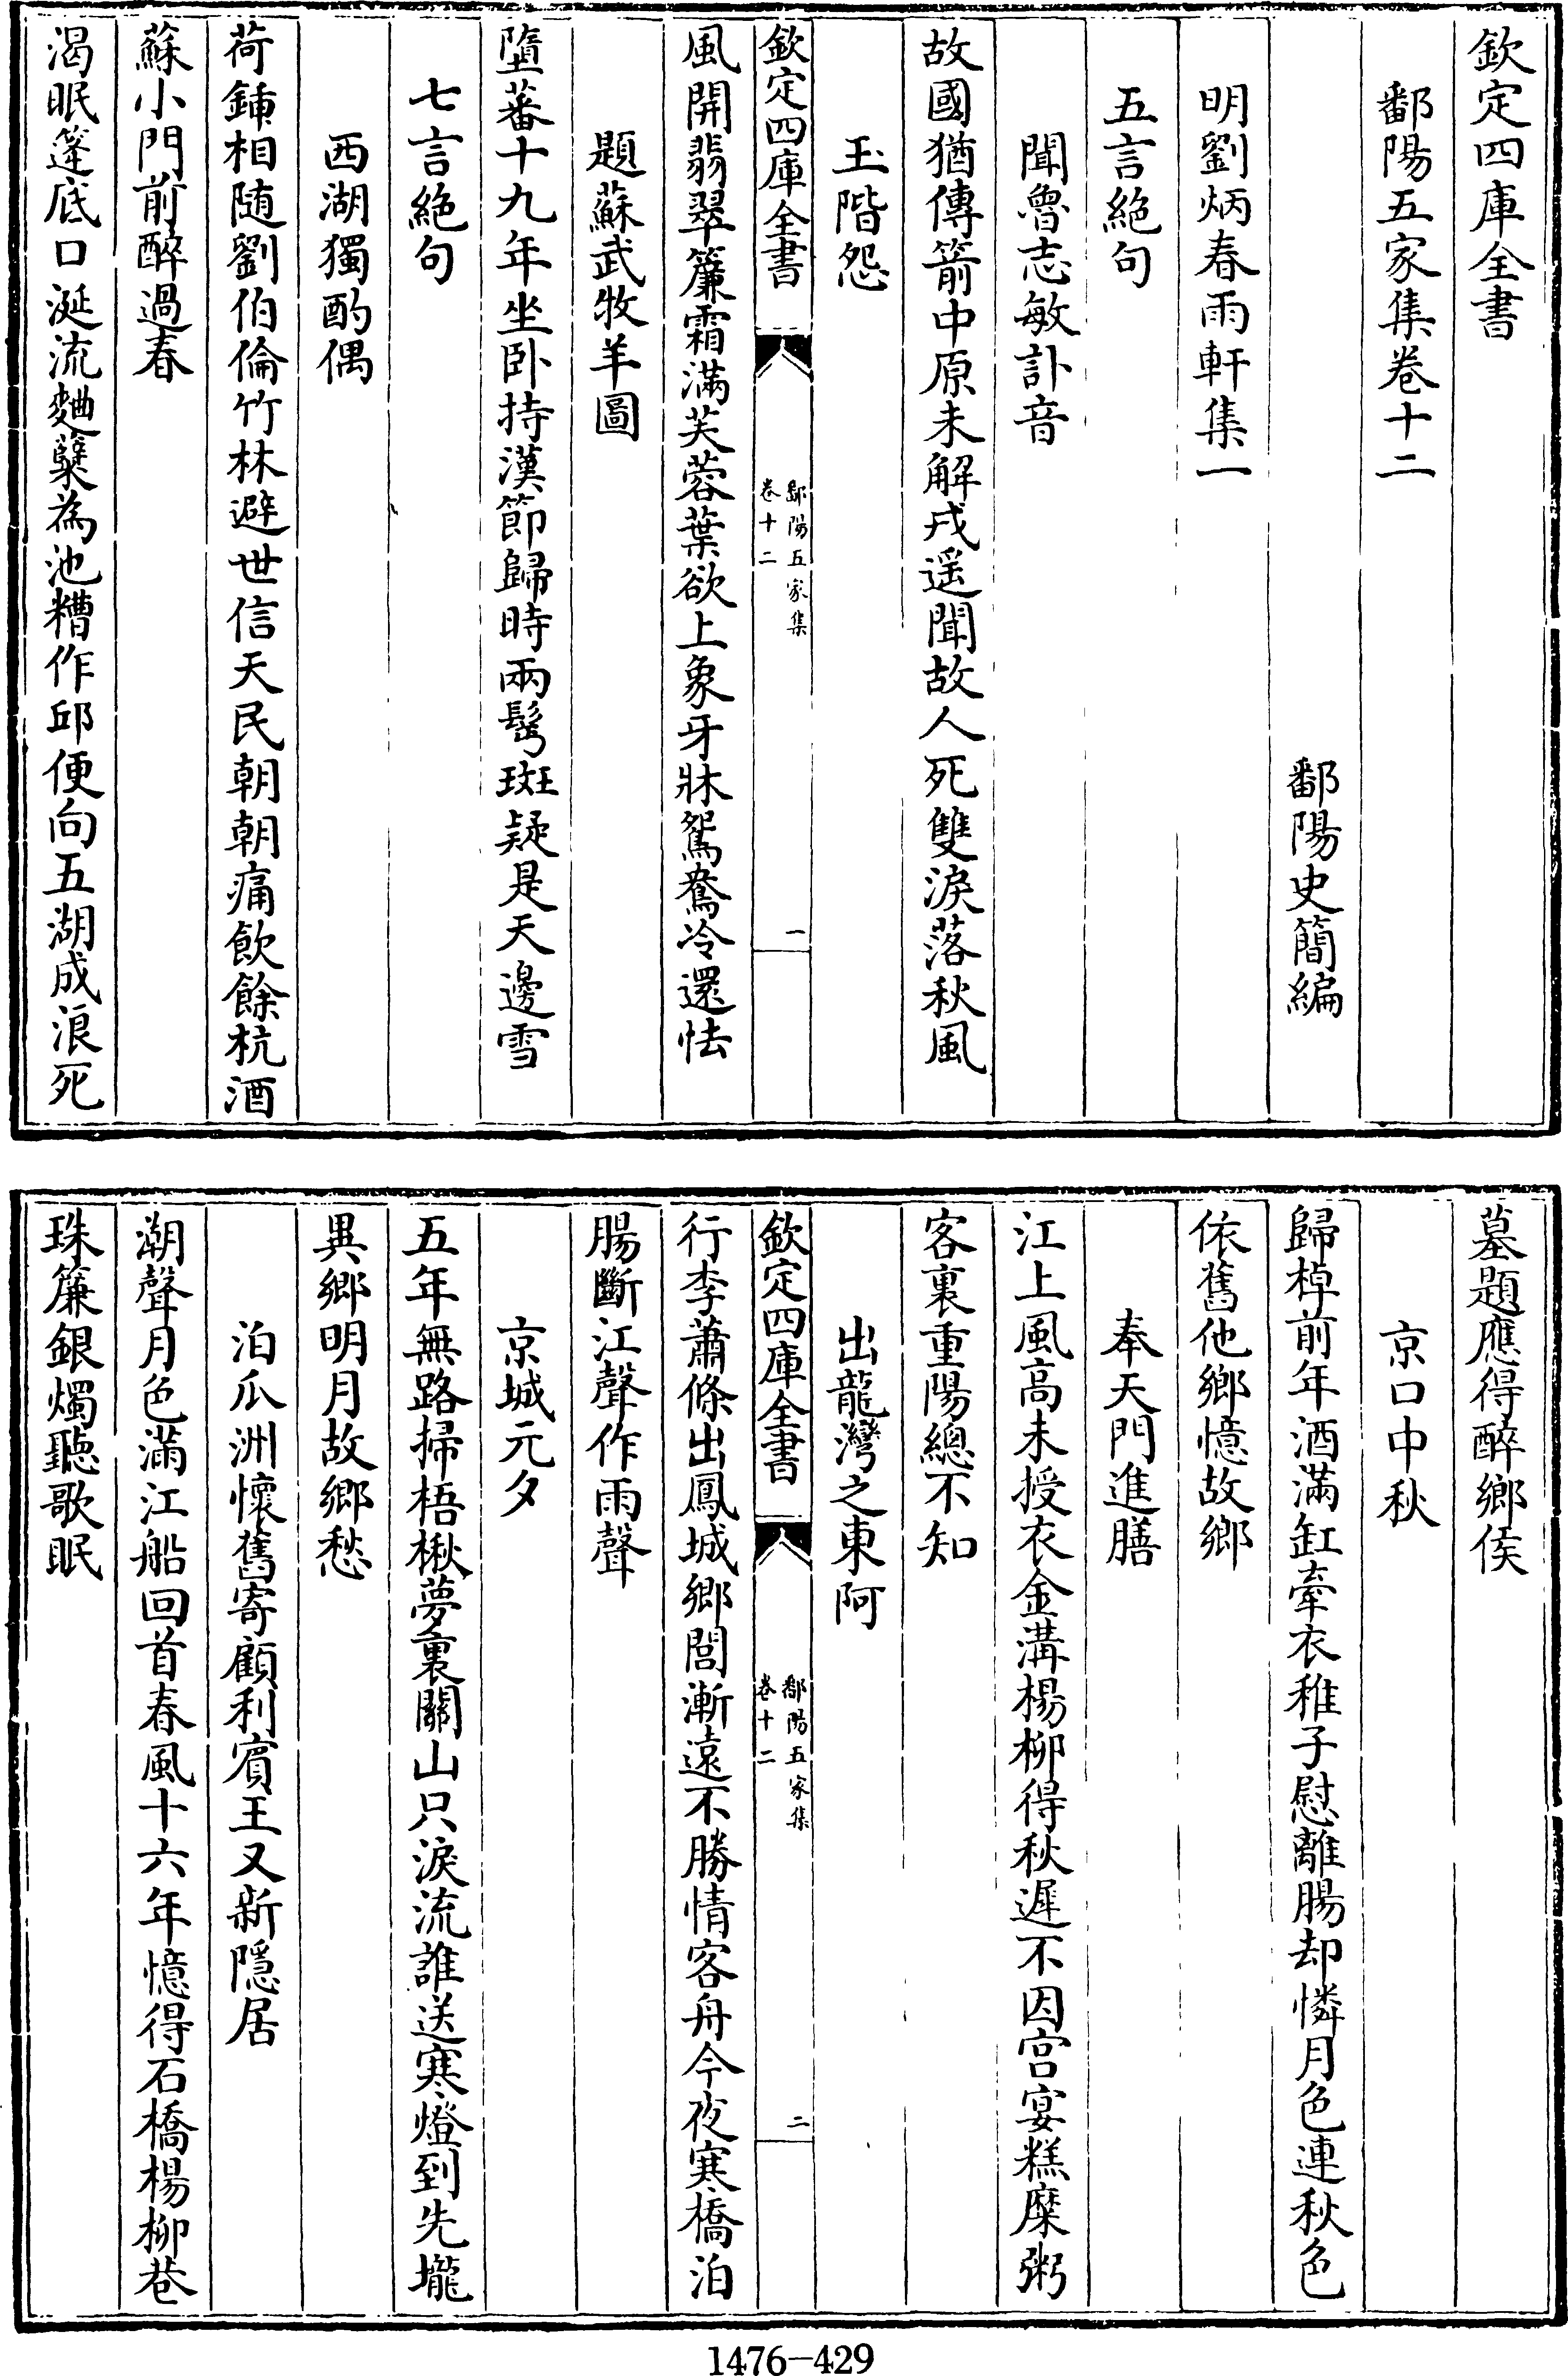 欽定四庫全書
鄱陽五家集卷十二
鄱陽史簡編
明劉炳春雨軒集一
五言絕句
聞魯志敏訃音
故國猶傳箭中原未解戎遥聞故人死雙淚落秋風
玉階怨
欽定四庫全書
鄱陽五家集
卷十二
一
風開翡翠簾霜滿芙蓉葉欲上象牙牀鴛鴦冷還怯
題蘇武牧羊圖
墮蕃十九年坐卧持漢節歸時兩髩斑疑是天邊雪
七言絕句
西湖獨酌偶
荷鍤相随劉伯倫竹林避世信天民朝朝痛飲餘杭酒
蘇小門前醉過春
渴眠篷底口涎流麯櫱為池糟作邱便向五湖成浪死
墓題應得醉鄉侯
京口中秋
歸棹前年酒滿缸牽衣稚子慰離腸却憐月色連秋色
依舊他鄉憶故鄉
奉天門進膳
江上風高未授衣金溝楊柳得秋遲不因宫宴糕糜粥
客裏重陽總不知
出龍灣之東阿
欽定四庫全書
鄱陽五家集
卷十二
二
行李蕭條出鳳城鄉閭漸遠不勝情客舟今夜寒橋泊
腸斷江聲作雨聲
京城元夕
五年無路掃梧楸夢裏關山只淚流誰送寒燈到先壠
異鄉明月故鄉愁
泊瓜洲懷舊寄顧利賓王又新隱居
潮聲月色滿江船回首春風十六年憶得石橋楊柳巷
珠簾銀燭聽歌眠
1476-429